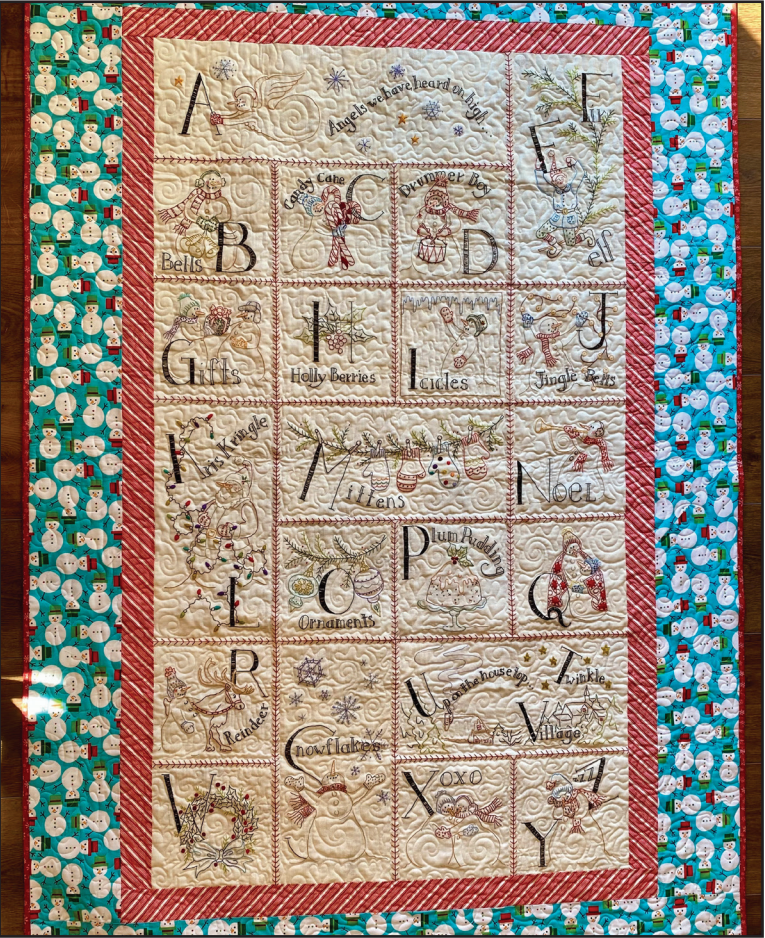 A
Angels we have heard on high...
Fir
E
elf
B
Bells
Candy Cane
C
Drummer Boy
D
Gifts
H
Holly Berries
Icicles
J
Jingle Bells
Kris Kringle
L
Mittens
Noel
O
Ornaments
Plum Pudding
Q
R
Reindeer
Snowflakes
Up on the house top...
Twinkle
Village
W
XOXO
Y
ZZZ